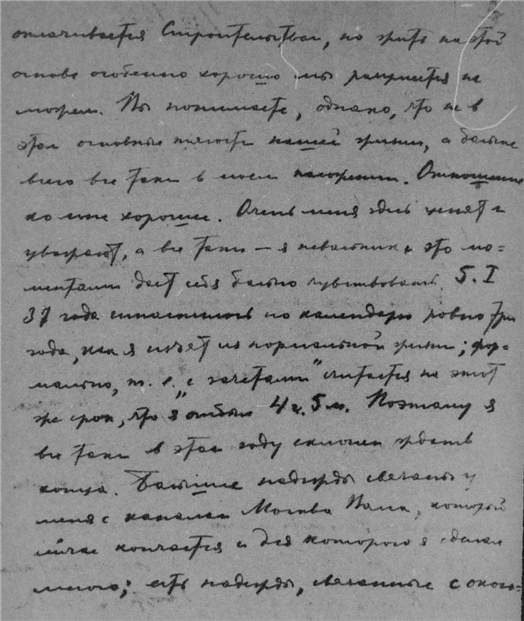 оплачивается Строительством, но жить на этой
основе особенно хорошо мы разумеется не
можем. Вы понимаете, однако, что не в
этом основные тягости нашей жизни, а больше
всего все таки в моем положении. Отношение
ко мне хорошие. Очень меня здесь ценят и
уважают, а все таки — я невольник и это мо-
ментами дает себя больно чувствовать. 5.I
37 года исполнилось по календарю ровно три
года, как я изъят из нормальной жизни; фор-
мально, т. е. „с зачетами" считается на этот
же срок, что я отбыл 4 г. 5 м. Поэтому я
все таки в этом году склонен ждать
конца. Большие надежды связаны у
меня с каналом Москва Волга, который
сейчас кончается и для которого я сделал
много; есть надежды, связанные с оконч-